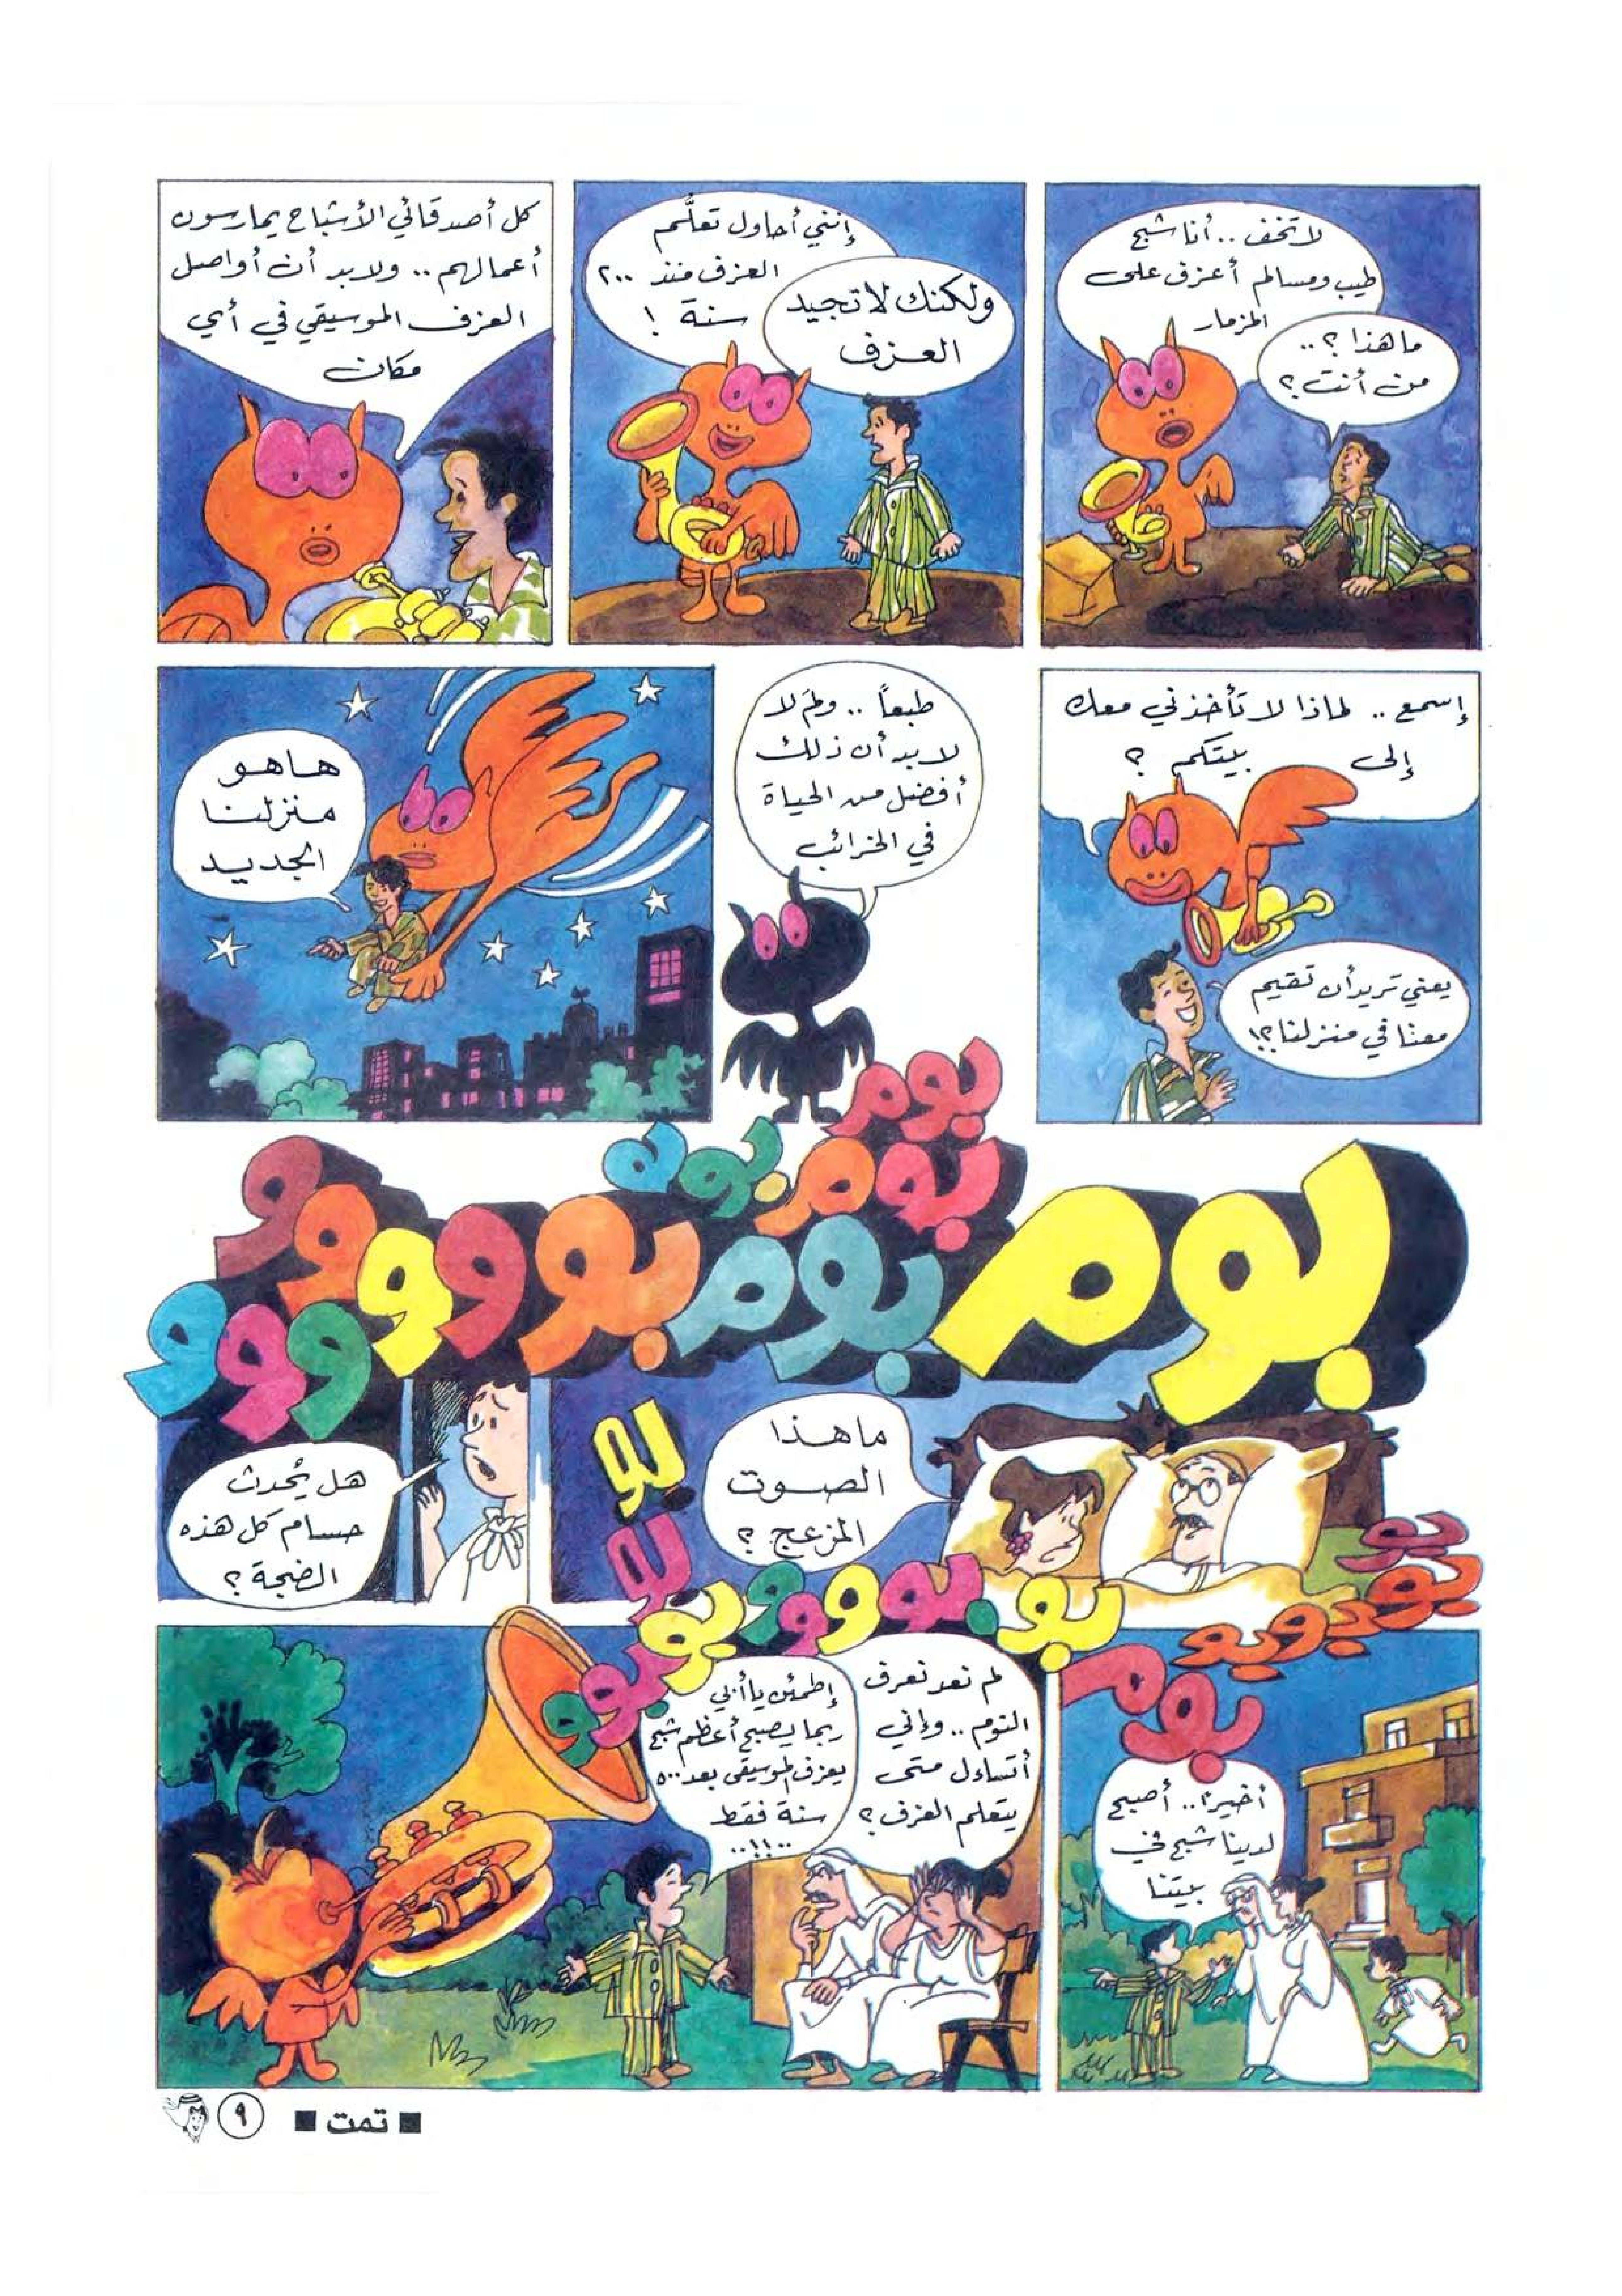 ما هذا ؟ ..
من أنت ؟
لا تخف .. أنا شبح
طيب ومسالم أعزف على
المزمار
إنني أحاول تعلّم
العزف منذ ٢٠٠
سنة !
ولكنك لا تجيد
العزف
كل أصدقائي الأشباح يمارسون
أعمالهم .. ولا بد أن أواصل
العزف الموسيقي في أي
مكان
إسمع .. لماذا لا تأخذني معك
إلى بيتكم ؟
يعني تريد أن تقيم
معنا في منزلنا ؟!
طبعاً .. ولمَ لا
لا بد أن ذلك
أفضل من الحياة
في الخرائب
هاهو
منزلنا
الجديد
بوم
بوم
بوم
بوم بوم بوووووو
ووو
ما هذا
الصوت
المزعج ؟
هل يُحدث
حسام كل هذه
الضجة ؟
بو
بو
بو
بوووو
بو
بوم
أخيراً .. أصبح
لدينا شبح في
بيتنا
لم نعد نعرف
النوم .. وإني
أتساءل متى
يتعلم العزف ؟
إطمئن يا أبي
ربما يصبح أعظم شبح
يعزف الموسيقى بعد ٥٠٠
سنة فقط
..!!..
■ تمت ■
٩